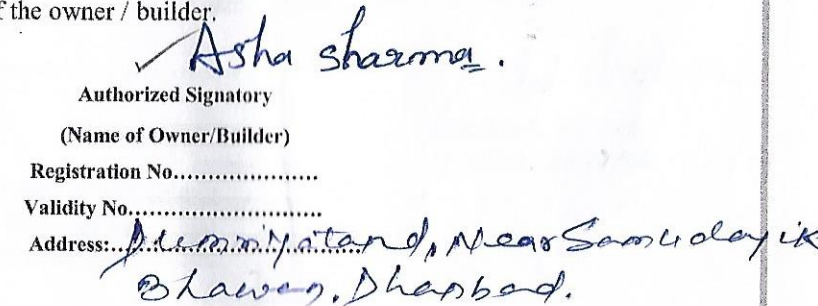 f the owner / builder.
Asha Sharma.
Authorized Signatory
(Name of Owner/Builder)
Registration No.....................
Validity No............................
Address:....Dumriyatand, Near Samudayik
Bhawan, Dhanbad.